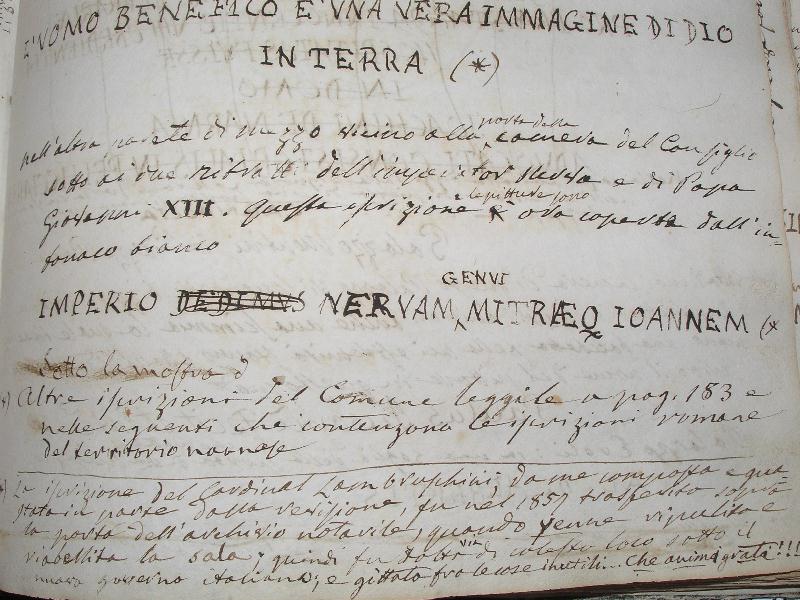 L'VOMO BENEFICO E' VNA VERA IMMAGINE DI DIO
IN TERRA (*)
nell'altra parete di mezzo vicino alla porta della camera del Consiglio
sotto ai due ritratti dell'imperator Nerva e di Papa
Giovanni XIII. Questa iscrizione le pitture sono è ora coperta dall'in-
tonaco bianco
IMPERIO DEDIMVS NERVAM GENVI MITRÆQ IOANNEM (*
Sotto la mostra d
*) Altre iscrizioni del Comune leggile a pag. 183 e
nelle seguenti che contenzono le iscrizioni romane
del territorio narnese
*) La iscrizione del Cardinal Lambruschini, da me composta e gua-
stata in parte dalla revisione, fu nel 1857 trasferita sopra
la porta dell'archivio notarile, quando venne ripulita e
riabellita la sala; quindi fu tolta via di cotesto loco sotto il
nuovo governo italiano; e gittata fra le cose inutili... Che anima grata!!!